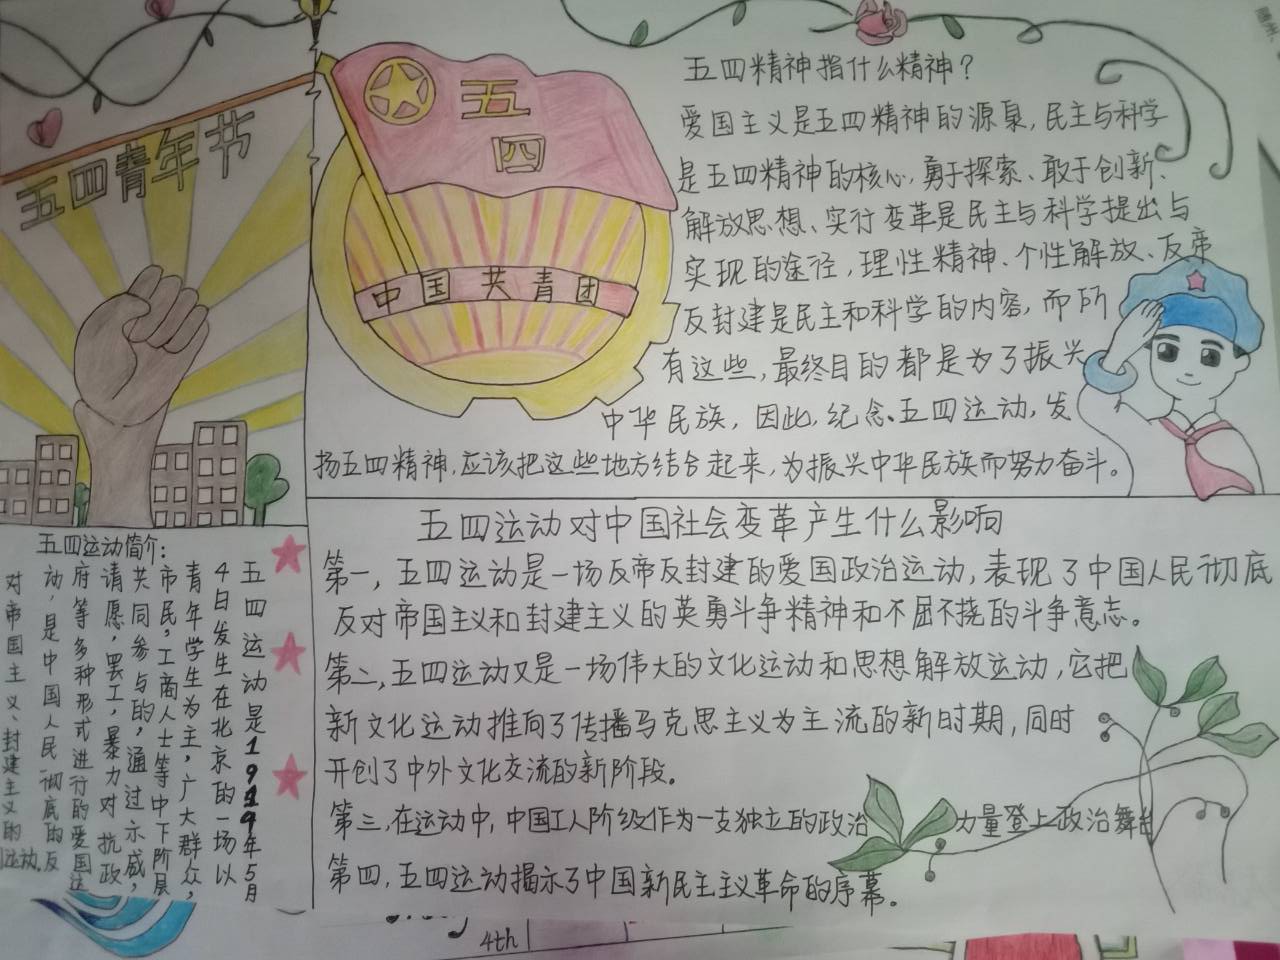 五四青年节
五
四
中国共青团
五四精神指什么精神？
爱国主义是五四精神的源泉，民主与科学
是五四精神的核心，勇于探索、敢于创新、
解放思想、实行变革是民主与科学提出与
实现的途径，理性精神、个性解放、反帝
反封建是民主和科学的内容，而所
有这些，最终目的都是为了振兴
中华民族，因此，纪念五四运动，发
扬五四精神，应该把这些地方结合起来，为振兴中华民族而努力奋斗。
五四运动简介：
五四运动是1919年5月
4日发生在北京的一场以
青年学生为主，广大群众，
市民，工商人士等中下阶层
共同参与的，通过示威，
请愿，罢工，暴力对抗政
府等多种形式进行的爱国运
动，是中国人民彻底的反
对帝国主义、封建主义的
运动。
五四运动对中国社会变革产生什么影响
第一，五四运动是一场反帝反封建的爱国政治运动，表现了中国人民彻底
反对帝国主义和封建主义的英勇斗争精神和不屈不挠的斗争意志。
第二，五四运动又是一场伟大的文化运动和思想解放运动，它把
新文化运动推向了传播马克思主义为主流的新时期，同时
开创了中外文化交流的新阶段。
第三，在运动中，中国工人阶级作为一支独立的政治力量登上政治舞台
第四，五四运动揭示了中国新民主主义革命的序幕。
4th